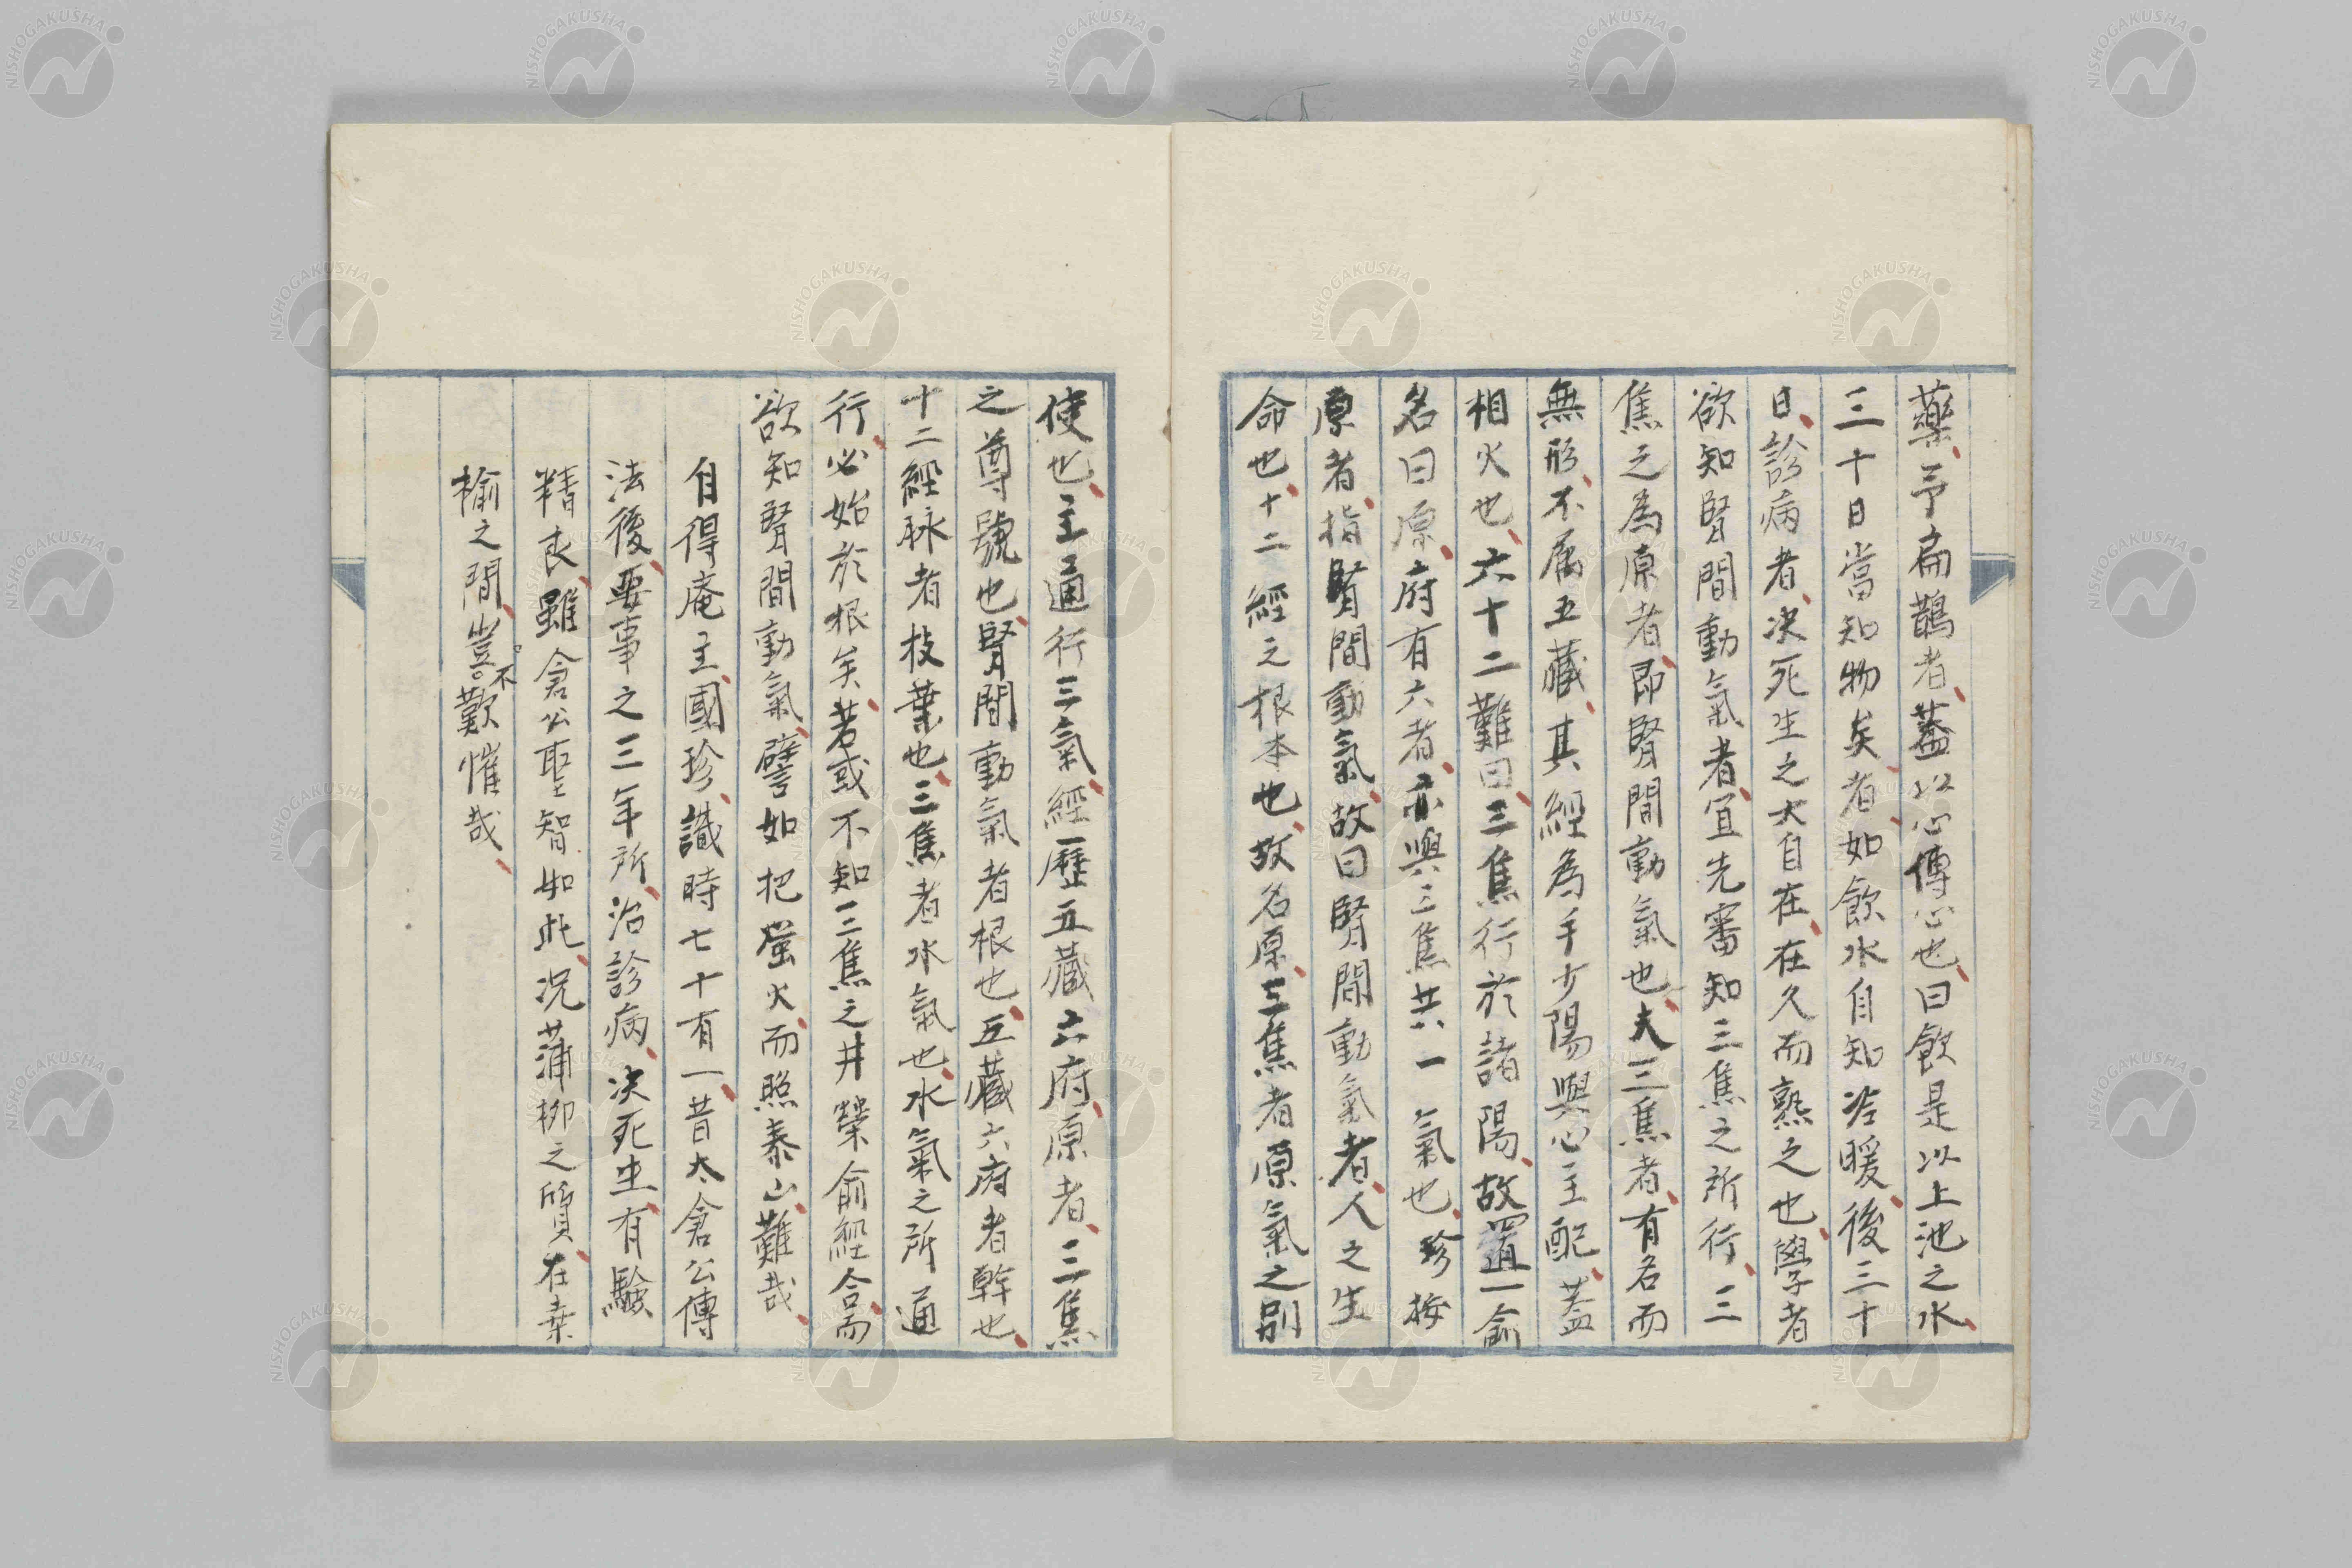 藥、予扁鵲者、蓋以心傳心也、曰飲是以上池之水、
三十日當知物矣、者、如飲水自知冷暖、後三十
日、診病者、决死生之大自在、在久而熟之也、學者
欲知腎間動氣者、宜先審知三焦之所行、三
焦之為原者、即腎間動氣也、夫三焦者、有名而
無形、不属五藏、其經為手少陽與心主配、蓋
相火也、六十二難曰、三焦行於諸陽、故置一俞
名曰原、府有六者、亦與三焦共一氣也、珍按
原者、指腎間動氣、故曰腎間動氣者、人之生
命也、十二經之根本也、故名原、三焦者原氣之別
使也、主通行三氣、經歷五藏六府、原者、三焦
之尊號也、腎間動氣者根也、五藏六府者幹也、
十二經脉者枝葉也、三焦者水氣也、水氣之所通
行、必始於根矣、若或不知三焦之井榮俞經合、而
欲知腎間動氣、譬如把螢火、而照泰山、難哉、
自得庵主、國珍、識時七十有一、昔太倉公傳
法後、要事之三年所、治診病、决死生、有驗
精良、雖倉公聖智如此、况蒲柳之質、在桒
榆之間、豈不歎惟哉、